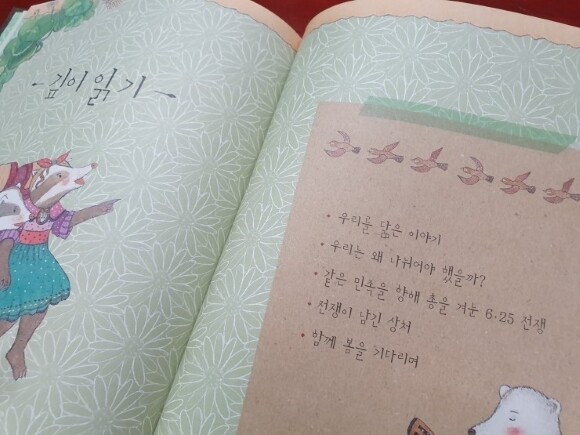 깊이 읽기
• 우리를 닮은 이야기
• 우리는 왜 나뉘어야 했을까?
• 같은 민족을 향해 총을 겨눈 6·25 전쟁
• 전쟁이 남긴 상처
• 함께 봄을 기다리며